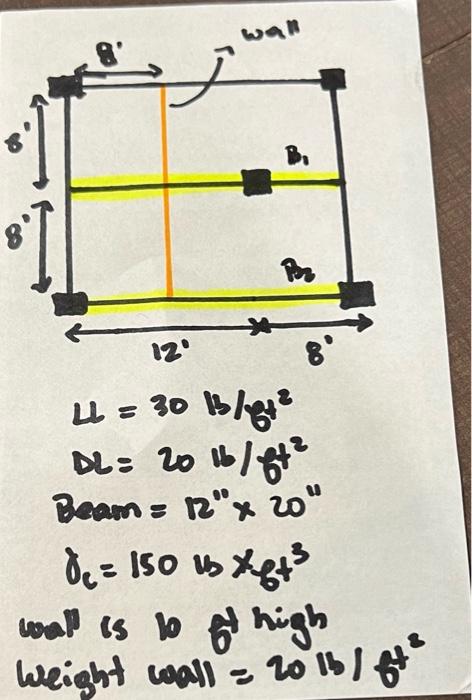 8'
wall
8'
B₁
8'
B₂
12'
8'
LL = 30 lb/ft²
DL = 20 lb/ft²
Beam = 12" x 20"
γc = 150 lb x ft³
wall is 10 ft high
Weight wall = 20 lb/ft²